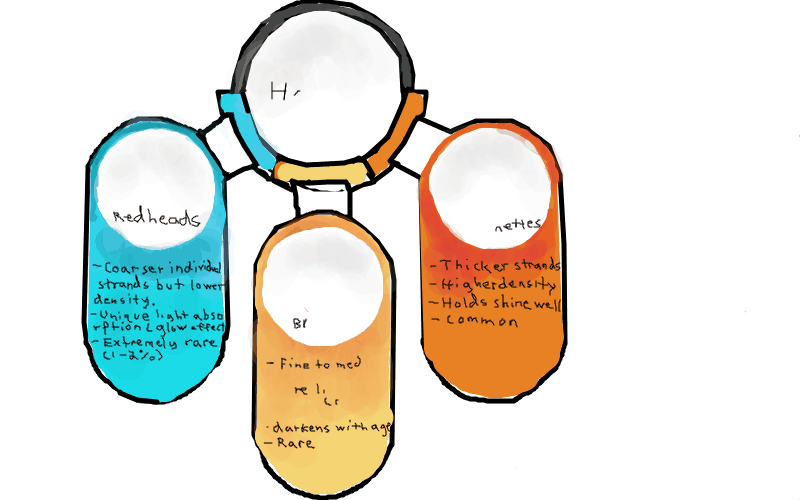 H
Redheads
- Coarser individual
strands but lower
density.
- Unique light abso
rption (glow effect
- Extremely rare
(1-2%)
Bl
- Fine to med
re li
darkens with age
- Rare
nettes
- Thicker strands
- Higher density
- Holds shine well
- Common